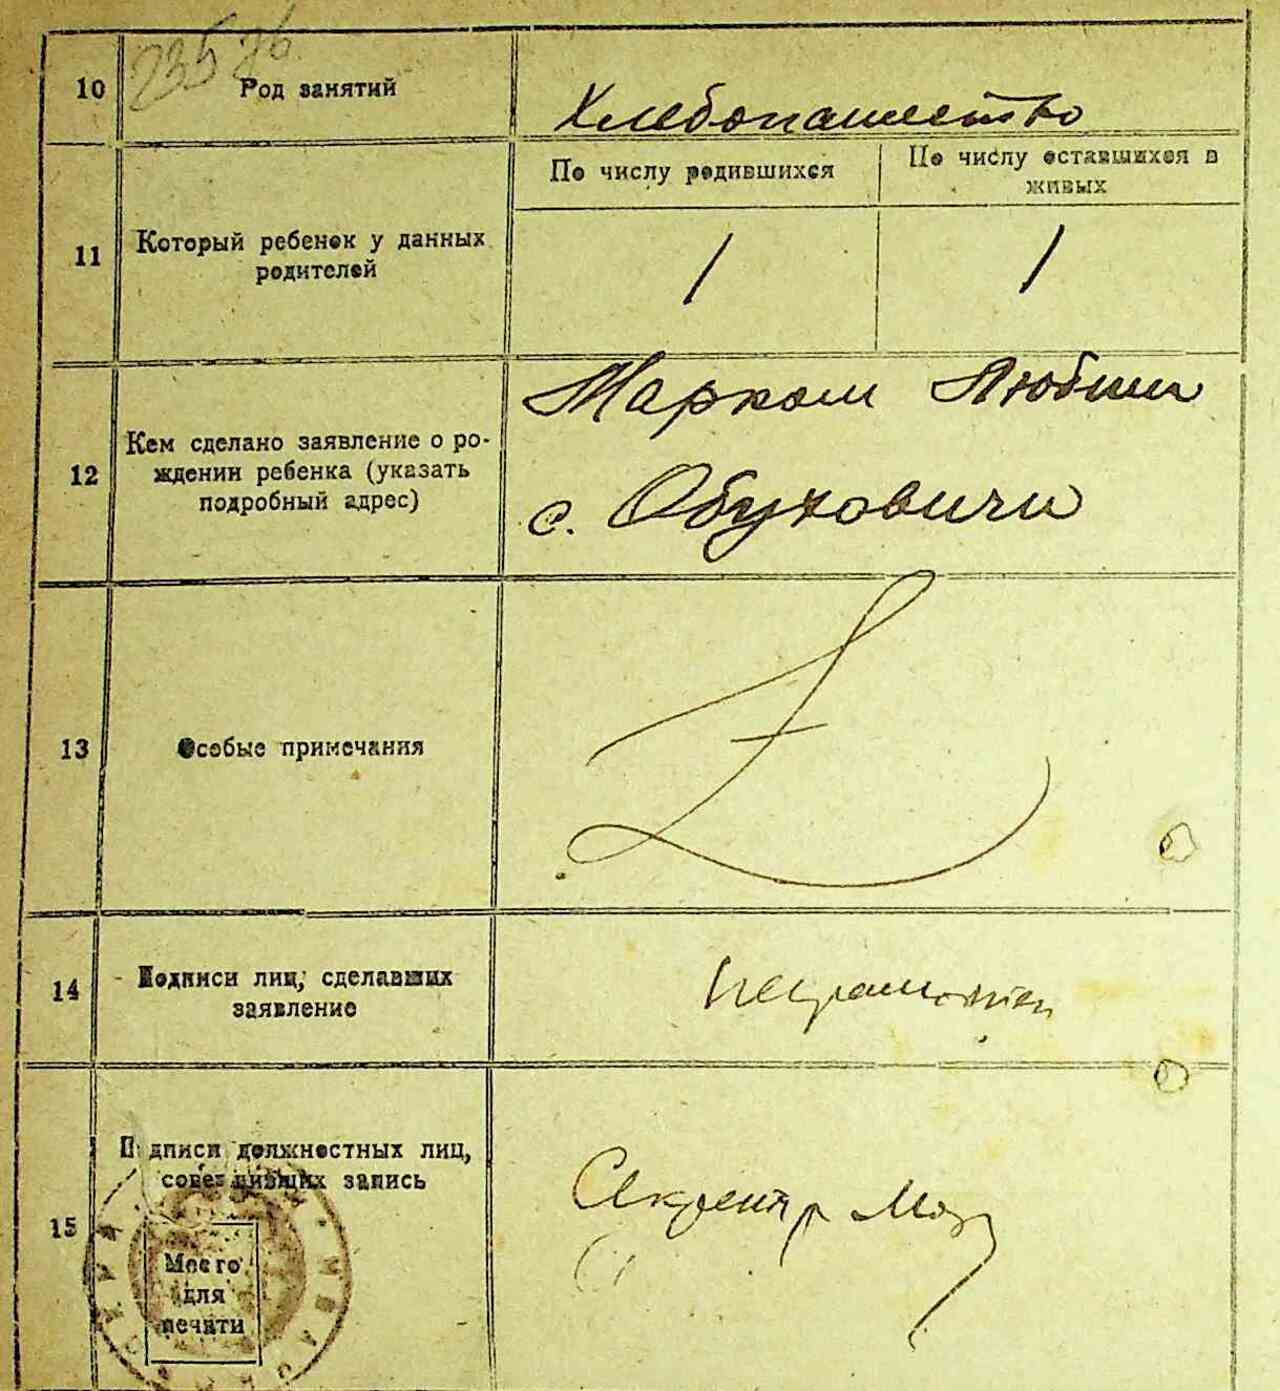 10
Род занятий
Хлебопашество
11
Который ребенок у данных
родителей
По числу родившихся
По числу оставшихся в
живых
1
1
12
Кем сделано заявление о ро-
ждении ребенка (указать
подробный адрес)
Марком
с. Обуховичи
13
Особые примечания
14
Подписи лиц, сделавших
заявление
неграмотен
15
Подписи должностных лиц,
совершивших запись
Место
для
печати